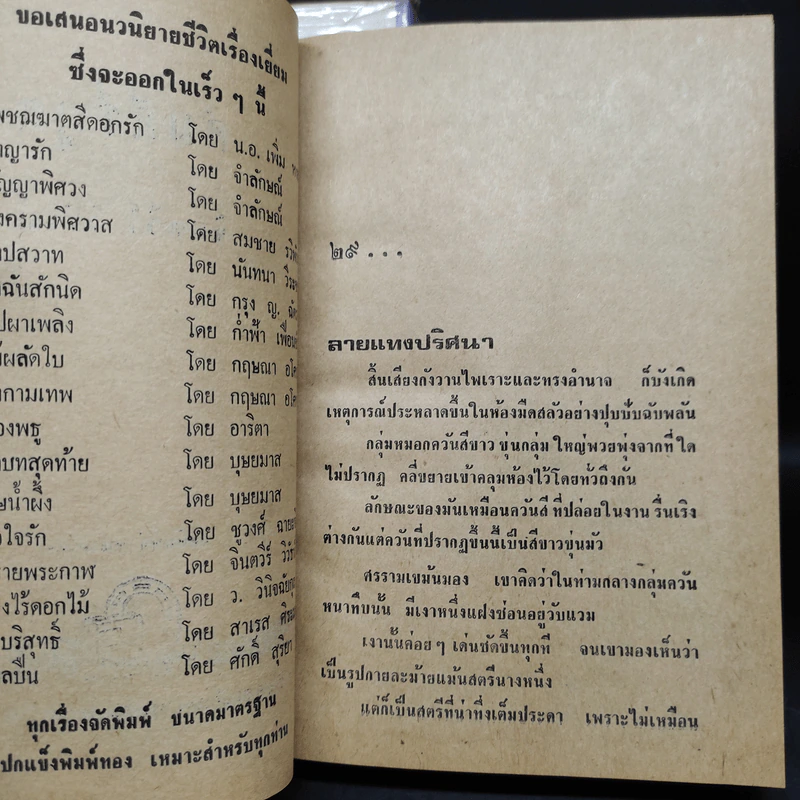 ขอเสนอนวนิยายชีวิตเรื่องเยี่ยม
ซึ่งจะออกในเร็ว ๆ นี้
พชฌฆาตสีดอกรัก โดย น.อ. เพิ่ม
ญารัก โดย จำลักษณ์
ัญญาพิศวง โดย จำลักษณ์
งครามพิศวาส โดย สมชาย
ปสวาท โดย นันทนา
ฉันสักนิด โดย กรุง ญ.
ปผาเพลิง โดย ก่ำฟ้า เฟื่อง
ผลัดใบ โดย กฤษณา อโศ
งกามเทพ โดย กฤษณา อโศ
องพธู โดย อาริตา
บทสุดท้าย โดย บุษยมาส
ษน้ำผึ้ง โดย บุษยมาส
ใจรัก โดย ชูวงศ์ ฉายะ
ายพระกาฬ โดย จินตวีร์ วิวั
งไร้ดอกไม้ โดย ว. วินิจฉัยกุ
บริสุทธิ์ โดย สาเรส ศิระ
ลปืน โดย ศักดิ์ สุริยา
ทุกเรื่องจัดพิมพ์ ขนาดมาตรฐาน
ปกแข็งพิมพ์ทอง เหมาะสำหรับทุกท่าน
๒๙ . . .
ลายแทงปริศนา
สิ้นเสียงกังวานไพเราะและทรงอำนาจ ก็บังเกิด
เหตุการณ์ประหลาดขึ้นในห้องมืดสลัวอย่างปุบปับฉับพลัน
กลุ่มหมอกควันสีขาว ขุ่นกลุ่ม ใหญ่พวยพุ่งจากที่ ใด
ไม่ปรากฏ คลี่ขยายเข้าคลุมห้องไว้โดยทั่วถึงกัน
ลักษณะของมันเหมือนควันสี ที่ปล่อยในงาน รื่นเริง
ต่างกันแต่ควันที่ปรากฏขึ้นนี้เป็นสีขาวขุ่นมัว
ศรรามเขม้นมอง เขาคิดว่าในท่ามกลางกลุ่มควัน
หนาทึบนั้น มีเงาหนึ่งแฝงซ่อนอยู่วับแวม
เงานั้นค่อย ๆ เด่นชัดขึ้นทุกที จนเขามองเห็นว่า
เป็นรูปกายละม้ายแม้นสตรีนางหนึ่ง
แต่ก็เป็นสตรีที่น่าทึ่งเต็มประดา เพราะไม่เหมือน